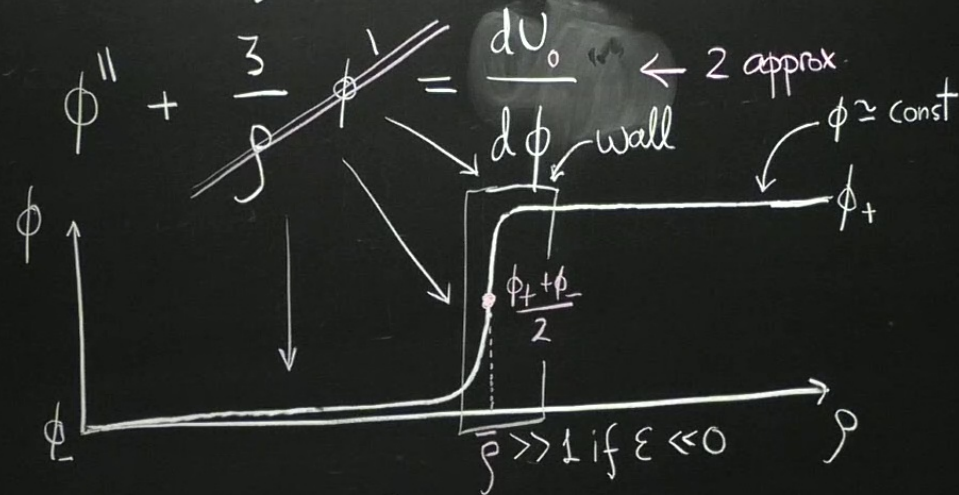 ϕ'' + 3/ρ ϕ' = dU₀/dϕ ← 2 approx.
wall
ϕ ≃ const
ϕ
ϕ₊
(ϕ₊ + ϕ₋)/2
ϕ₋
ρ̄ >> 1 if ε << 0
ρ